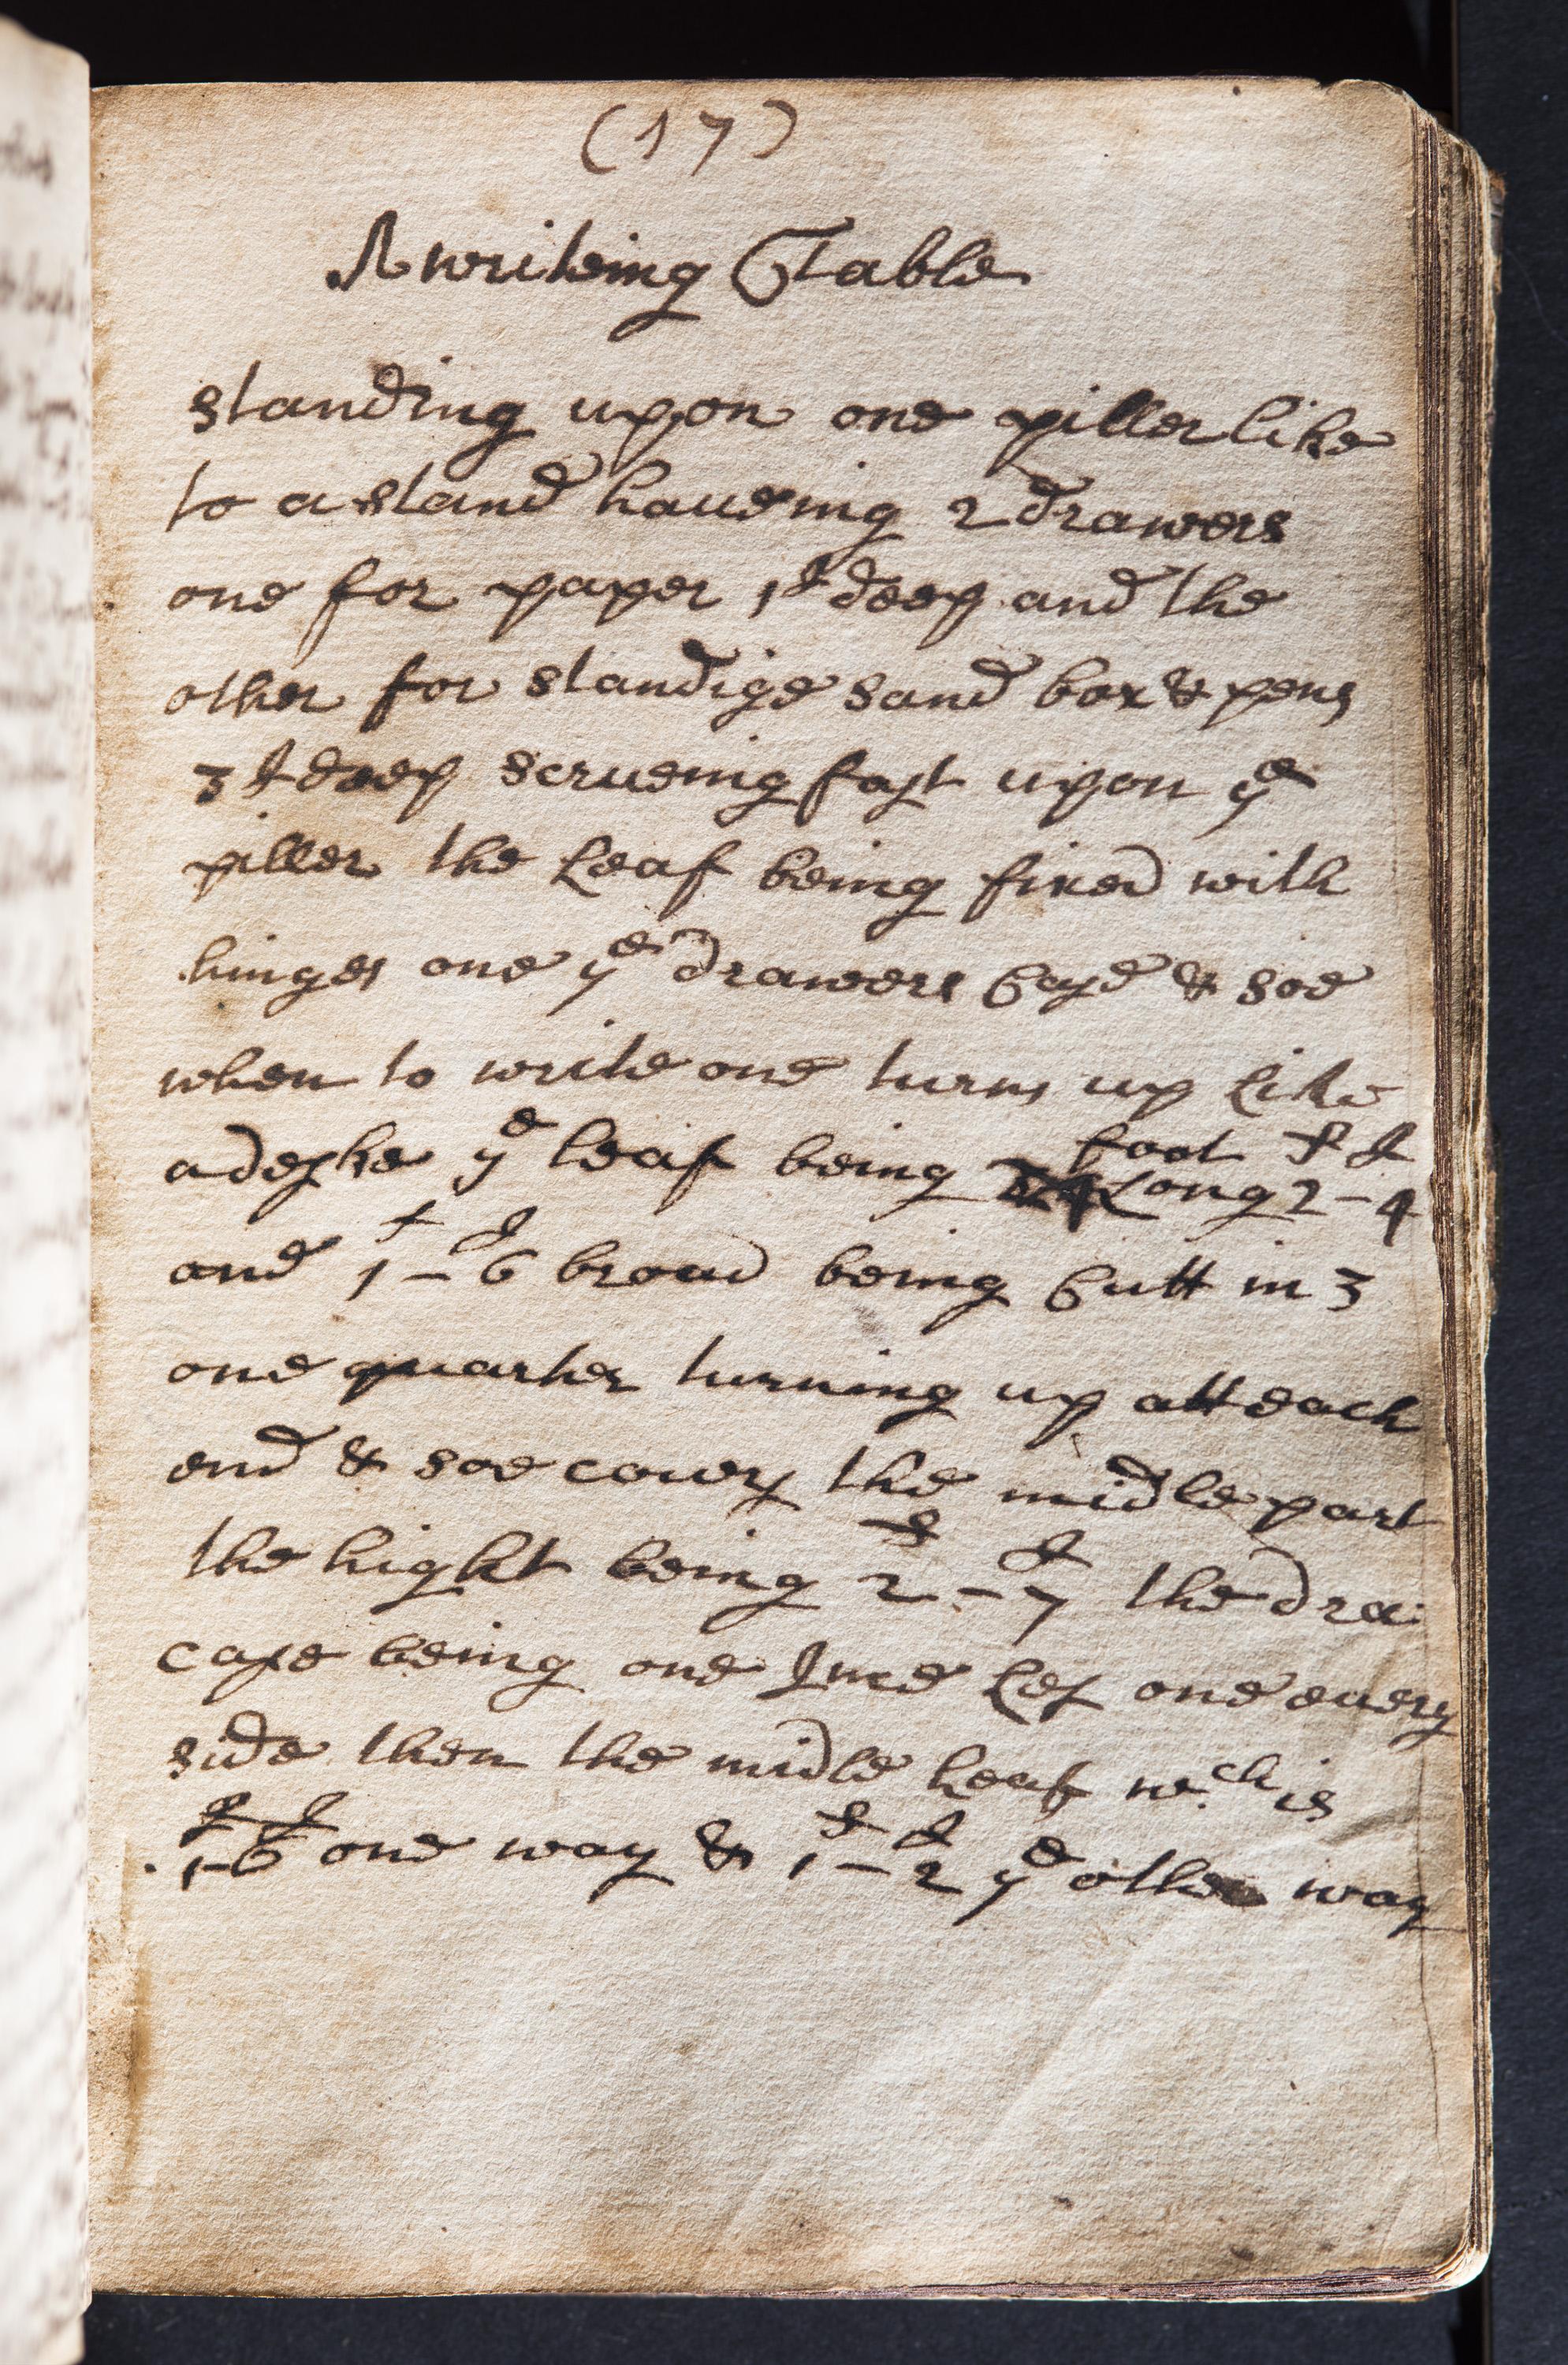 (17)
A writeing Table
standing upon one piller like
to a stand haueing 2 drawers
one for paper 1 I deep and the
other for standige sand box & pens
3 I deep scrueing fast upon ye
piller the Leaf being fixed with
hinges one ye drawers Case & soe
when to write one turns up Like
a deske ye leaf being foot F I
Long 2-4
and 1 f - 6 I broad being Cutt in 3
one quarter turning up att each
end & soe couers the midle part
the hight being 2 F - 7 I the dra:
case being one Ince Les one euery
side then the midle Leaf wch is
1 F - 6 I one way & 1 F - 2 I ye other way